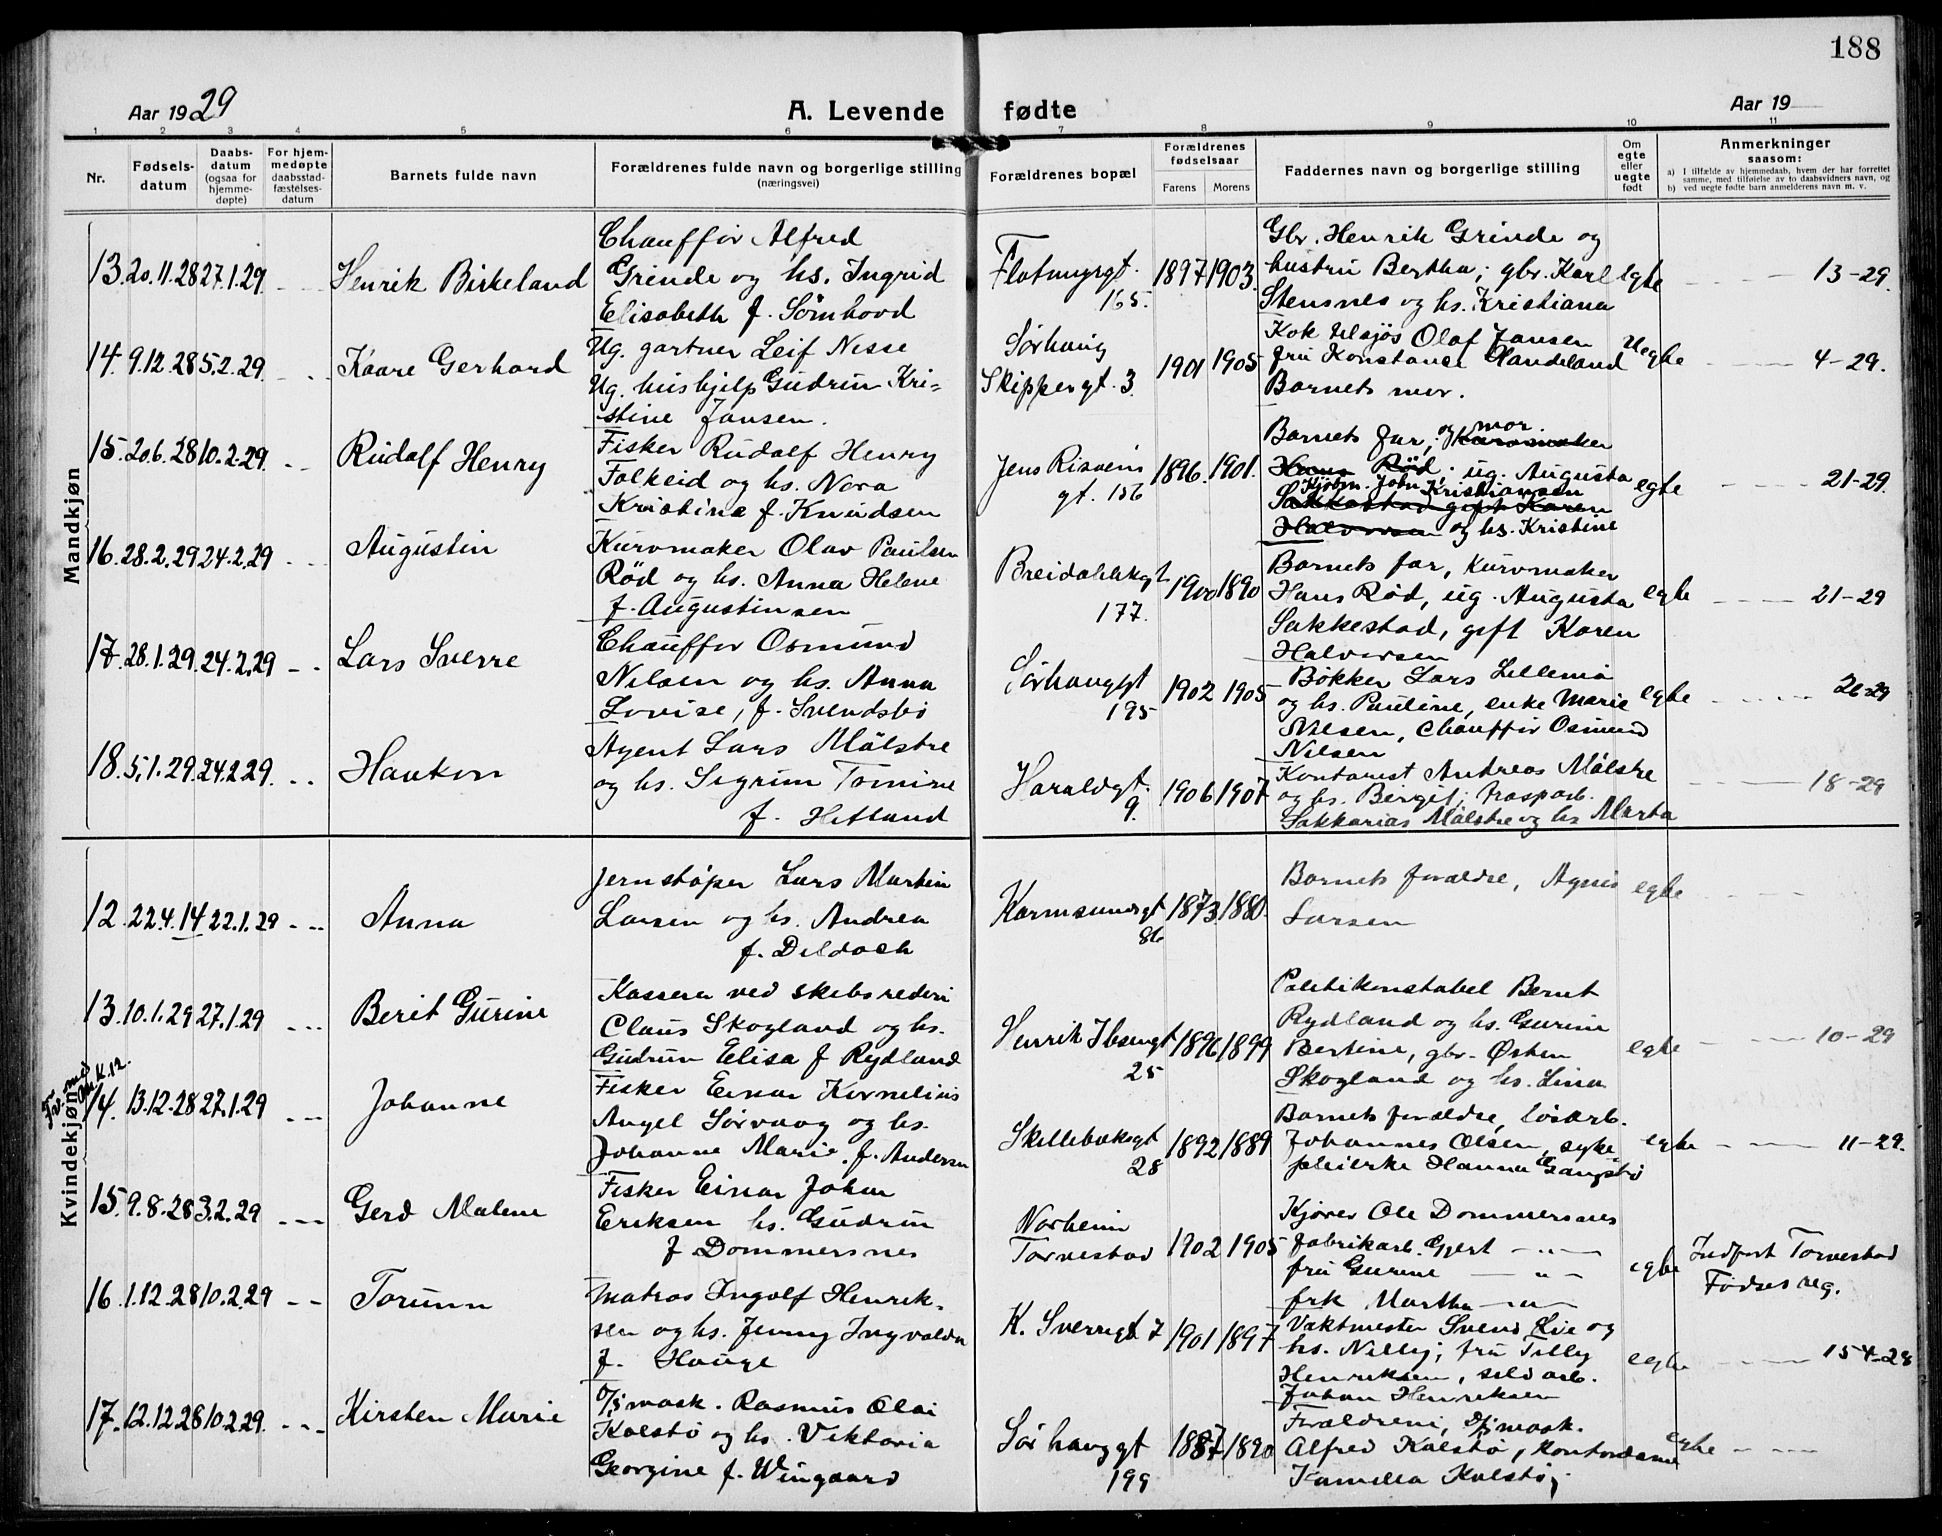 188
Aar 1929
A. Levende fødte
Aar 19
1 2 3 4 5 6 7 8 9 10 11
Nr.
Fødsels-
datum
Daabs-
datum
(ogsaa for
hjemme-
døpte)
For hjem-
medøpte
daabsstad-
fæstelses-
datum
Barnets fulde navn
Forældrenes fulde navn og borgerlige stilling
(næringsvei)
Forældrenes bopæl
Forældrenes
fødselsaar
Farens Morens
Faddernes navn og borgerlige stilling
Om
egte
eller
uegte
født
Anmerkninger
saasom:
a) I tilfælde av hjemmedaab, hvem der har forrettet
samme, med tilføielse av to daabsvidners navn, og
b) ved uegte fødte barn anmelderens navn m. v.
Mandkjøn
13. 20.11.28 27.1.29 Henrik Birkeland
Chauffør Alfred
Grinde og hs. Ingrid
Elisabeth f. Sømhovd
Flotmyrgt.
165.
1897 1903.
Gbr. Henrik Grinde og
hustru Bertha; gbr. Karl
Stensnes og hs. Kristiana
egte
13-29.
14. 9.12.28 5.2.29. Kaare Gerhard
Ug. gartner Leif Nesse
Ug. hushjelp Gudrun Kri-
stine Jansen.
Sørhaug
Skippergt. 3.
1901 1905
Kok tilsjøs Olaf Jansen
fru Konstanse Handeland
Barnets mor.
Uegte
4-29.
15. 20.6.28 10.2.29. Rudolf Henry
Fisker Rudolf Henry
Falkeid og hs. Nora
Kristine f. Knudsen
Jens Risøens
gt. 156
1896. 1901.
Barnets far, og mor. Kurvmaker
Hans Rød; ug. Augusta
Kjøbm. John Kristiansen
Sakkestad gift Karen
Halvorsen og hs. Kristine
egte
21-29.
16. 28.2.29 24.2.29 Augustin
Kurvmaker Olav Paulsen
Rød og hs. Anna Helene
f. Augustinsen
Breidablikgt
177.
1900 1890
Barnets far, Kurvmaker
Hans Rød, ug. Augusta
Sakkestad, gift Karen
Halvorsen
egte
21-29
17. 28.1.29. 24.2.29 Lars Sverre
Chauffør Osmund
Nilsen og hs. Anna
Lovise, f. Svendsbø
Sørhauggt
195
1902 1905
Bøkker Lars Lillemo
og hs. Pauline, enke Marie
Nilsen, Chauffør Osmund
Nilsen
egte
26-29
18. 5.1.29. 24.2.29. Haakon
Agent Lars Målstre
og hs. Sigrun Tomine
f. Hetland
Haraldgt.
9.
1906 1907
Kontorist Andreas Målstre
og hs. Birgit;
Sakkarias Målstre og hs Marta
18-29
Kvindekjøn
12 22.4.14 22.1.29 Anna
Jernstøper Lars Martin
Larsen og hs. Andrea
f.
Karmsundgt
86
1873 1880.
Barnets forældre, Agnes
Larsen
egte
13. 10.1.29 27.1.29 Berit Gurine
Kasserer ved skibsrederi
Claus Skogland og hs.
Gudrun Elisa f Rydland
Henrik Ibsengt
25
1896 1899
Politikonstabel Bernt
Rydland og hs. Gurine
Bertine, gbr. Østen
Skogland og hs. Lina
egte
10-29
14. 13.12.28 27.1.29 Johanne
Fisker Einar Kornelius
Angel Sørvaag og hs.
Johanne Marie f. Andersen
Skillebekgt
28
1892 1889
Barnets forældre, løsarb.
Johannes Olsen, syke-
pleierske Hanna Gangstø
egte
11-29.
15. 9.8.28 3.2.29 Gerd Malene
Fisker Einar Johan
Eriksen hs. Gudrun
f Dommersnes
Norheim
Torvestad
1902 1905
Kjører Ole Dommersnes
fabrikarb. Gjert — " —
fru Gurine — " —
frk Martha — " —
egte
Indført Torvestad
Fødsesreg.
16. 1.12.28 10.2.29 Torunn
Matros Ingolf Henrik-
sen og hs. Jenny Ingvalda
f. Hauge
K. Sverresgt 7
1901 1897
Vaktmester Svend Lie og
hs. Nilly; fru Tilly
Henriksen, sildarb.
Johan Henriksen
egte
154-28
17. 12.12.28 10.2.29. Kirsten Marie
D/S mask. Rasmus Olai
Kolstø og hs. Viktoria
Georgine f. Wingaard
Sørhauggt
199
1887 1890
Forældrene, D/S mask.
Alfred Kolstø, Kontordame
Kamilla Kolstø,
egte